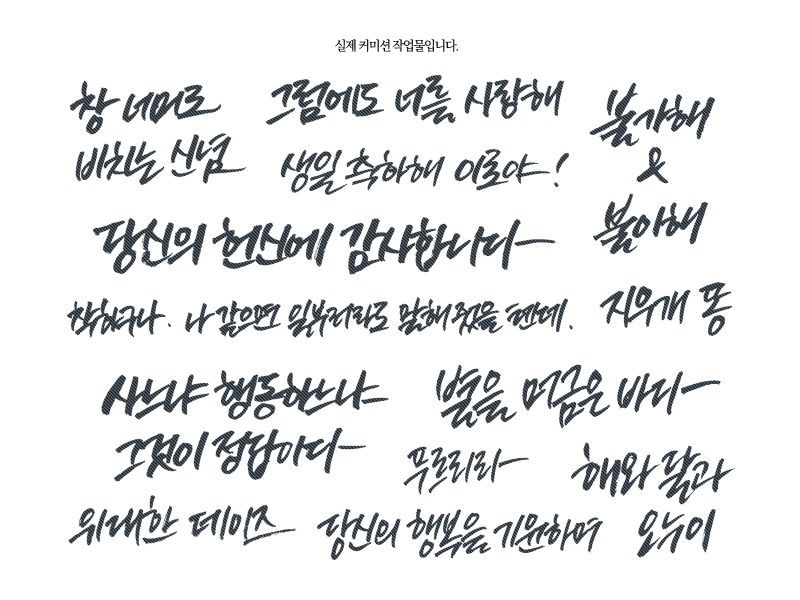 실제 커미션 작업물입니다.
창 너머로
비치는 신념
그럼에도 너를 사랑해
생일 축하해 이로야!
불가해
&
불아해
당신의 헌신에 감사합니다
착하구나. 나 같으면 일부러라도 말해줬을 텐데.
지우개 똥
사느냐 행동하느냐
그것이 정답이다
별을 머금은 바다
푸르리라
해와 달과
오누이
위대한 데이즈
당신의 행복을 기원하며